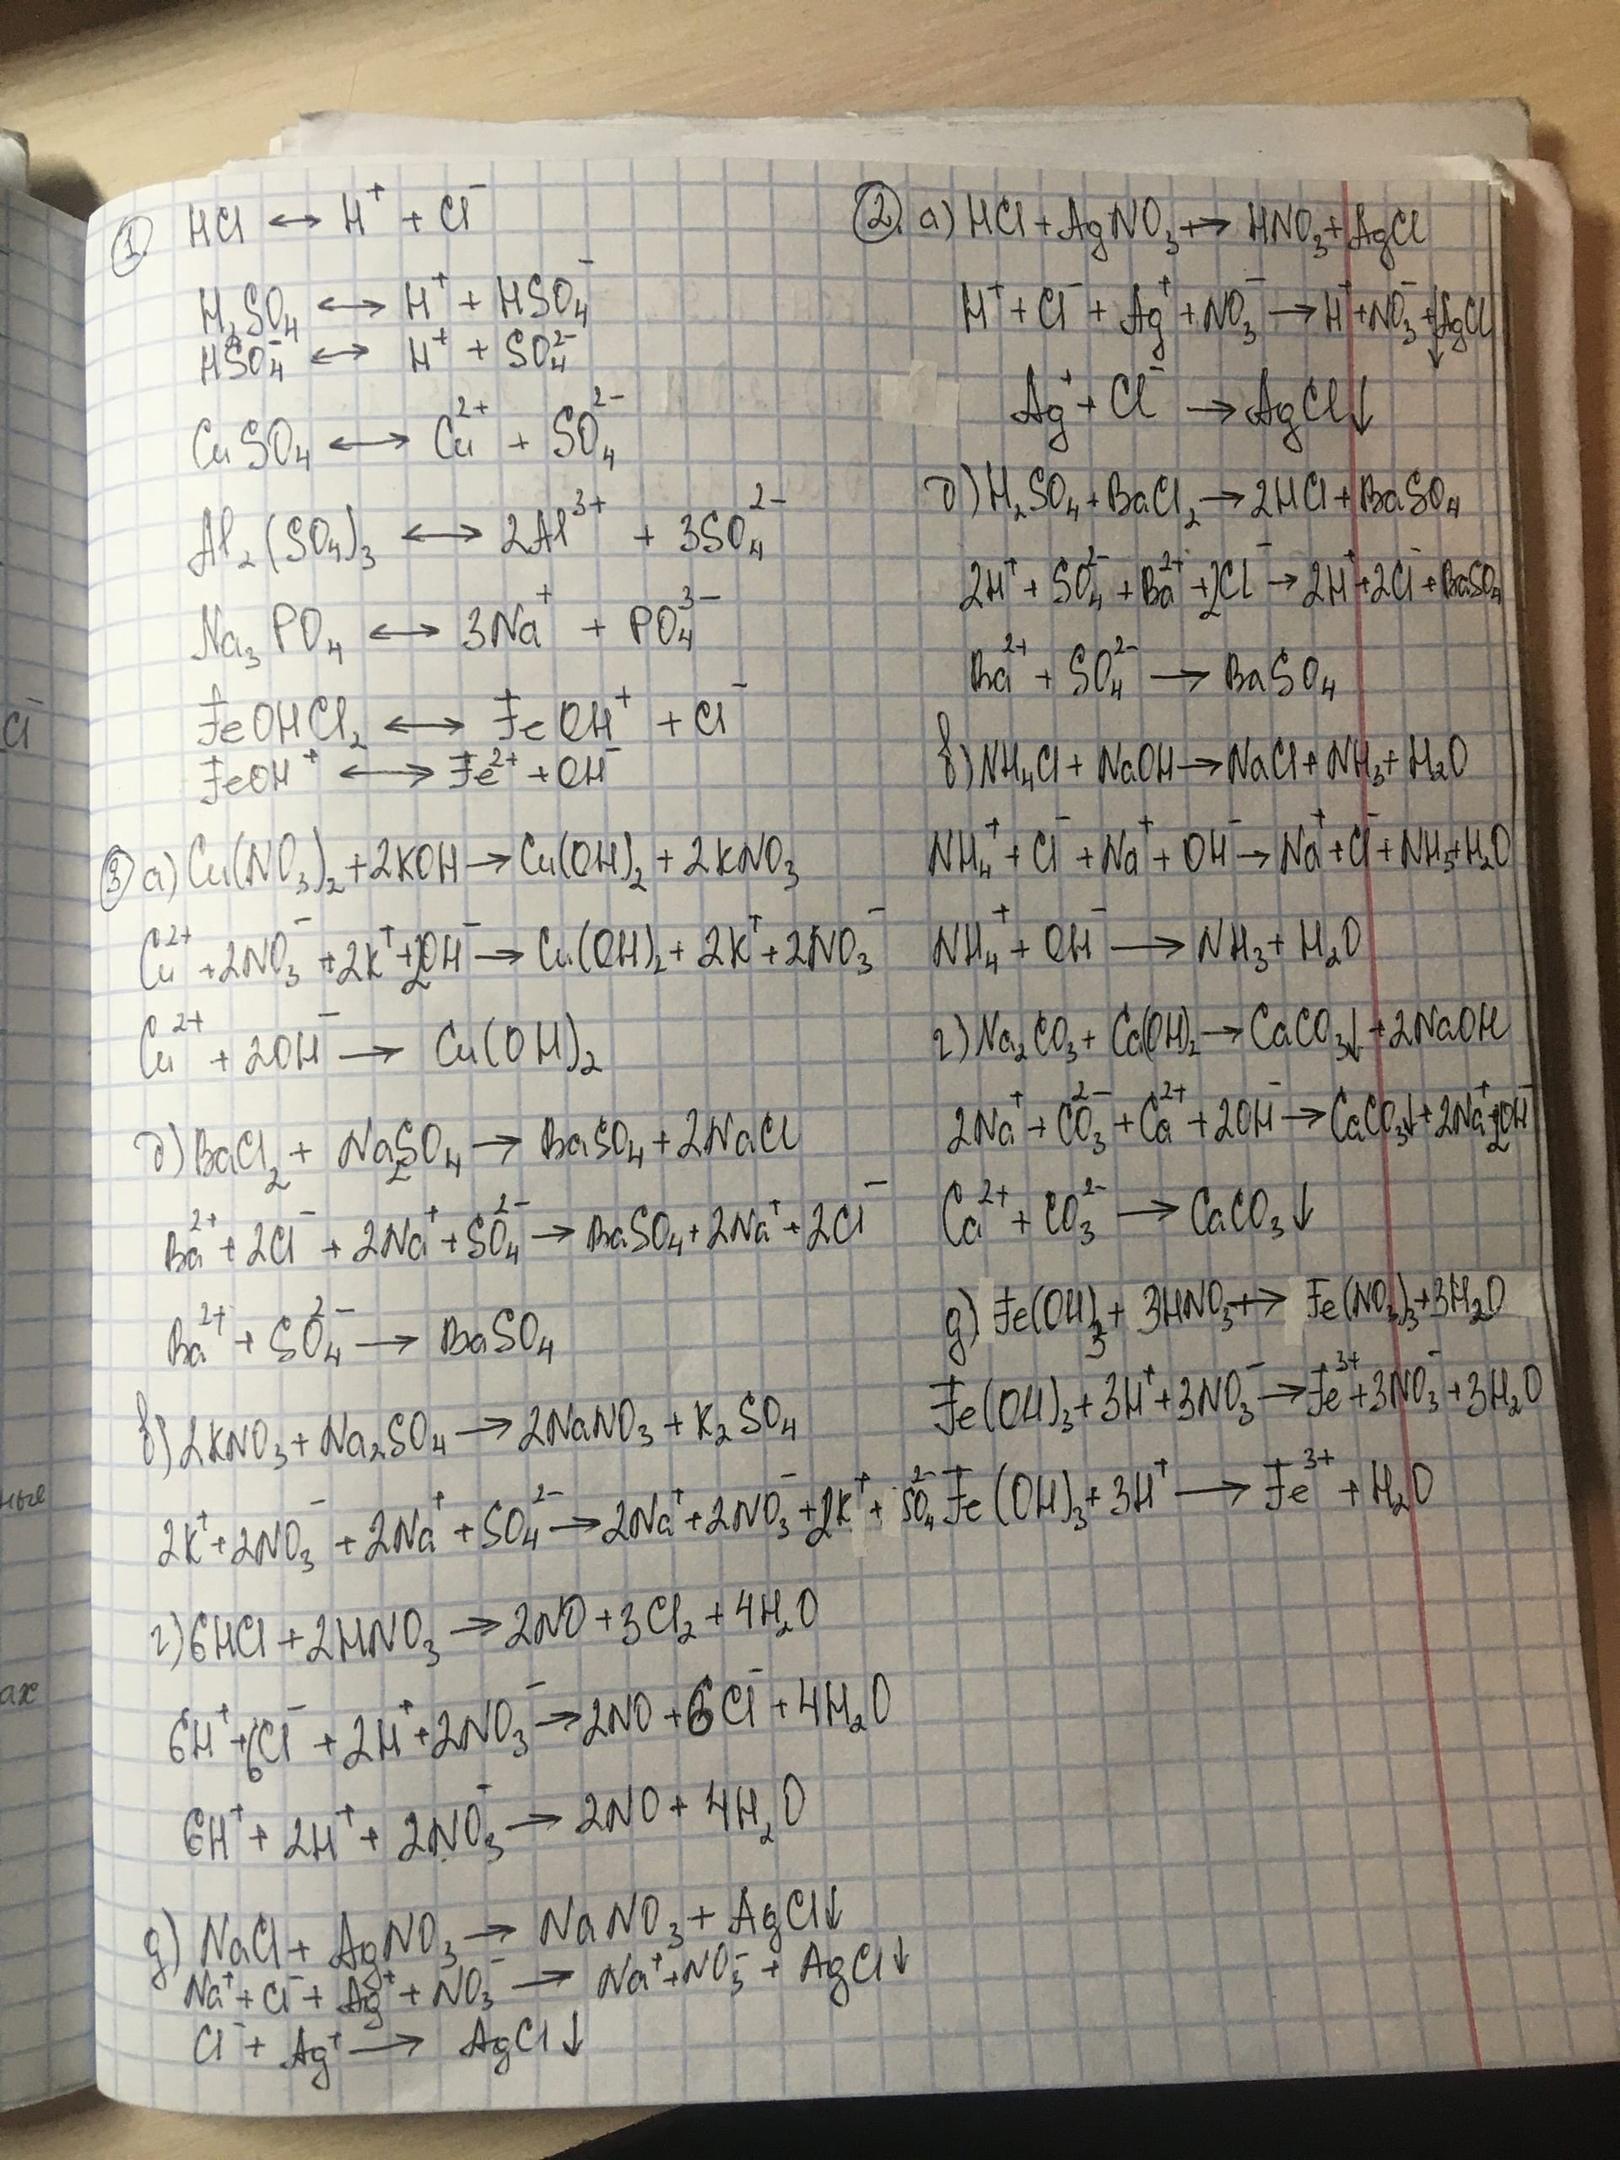 1. HCl ↔ H⁺ + Cl⁻
H₂SO₄ ↔ H⁺ + HSO₄⁻
HSO₄⁻ ↔ H⁺ + SO₄²⁻
CuSO₄ ↔ Cu²⁺ + SO₄²⁻
Al₂(SO₄)₃ ↔ 2Al³⁺ + 3SO₄²⁻
Na₃PO₄ ↔ 3Na⁺ + PO₄³⁻
FeOHCl₂ ↔ FeOH⁺ + Cl⁻
FeOH⁺ ↔ Fe²⁺ + OH⁻
3 а) Cu(NO₃)₂ + 2KOH → Cu(OH)₂ + 2KNO₃
Cu²⁺ + 2NO₃⁻ + 2K⁺ + 2OH⁻ → Cu(OH)₂ + 2K⁺ + 2NO₃⁻
Cu²⁺ + 2OH⁻ → Cu(OH)₂
б) BaCl₂ + Na₂SO₄ → BaSO₄ + 2NaCl
Ba²⁺ + 2Cl⁻ + 2Na⁺ + SO₄²⁻ → BaSO₄ + 2Na⁺ + 2Cl⁻
Ba²⁺ + SO₄²⁻ → BaSO₄
в) 2KNO₃ + Na₂SO₄ → 2NaNO₃ + K₂SO₄
2K⁺ + 2NO₃⁻ + 2Na⁺ + SO₄²⁻ → 2Na⁺ + 2NO₃⁻ + 2K⁺ + SO₄²⁻
г) 6HCl + 2HNO₃ → 2NO + 3Cl₂ + 4H₂O
6H⁺ + 6Cl⁻ + 2H⁺ + 2NO₃⁻ → 2NO + 6Cl⁻ + 4H₂O
6H⁺ + 2H⁺ + 2NO₃⁻ → 2NO + 4H₂O
д) NaCl + AgNO₃ → NaNO₃ + AgCl↓
Na⁺ + Cl⁻ + Ag⁺ + NO₃⁻ → Na⁺ + NO₃⁻ + AgCl↓
Cl⁻ + Ag⁺ → AgCl↓
2. а) HCl + AgNO₃ → HNO₃ + AgCl
H⁺ + Cl⁻ + Ag⁺ + NO₃⁻ → H⁺ + NO₃⁻ + AgCl↓
Ag⁺ + Cl⁻ → AgCl↓
б) H₂SO₄ + BaCl₂ → 2HCl + BaSO₄
2H⁺ + SO₄²⁻ + Ba²⁺ + 2Cl⁻ → 2H⁺ + 2Cl⁻ + BaSO₄
Ba²⁺ + SO₄²⁻ → BaSO₄
в) NH₄Cl + NaOH → NaCl + NH₃ + H₂O
NH₄⁺ + Cl⁻ + Na⁺ + OH⁻ → Na⁺ + Cl⁻ + NH₃ + H₂O
NH₄⁺ + OH⁻ → NH₃ + H₂O
г) Na₂CO₃ + Ca(OH)₂ → CaCO₃↓ + 2NaOH
2Na⁺ + CO₃²⁻ + Ca²⁺ + 2OH⁻ → CaCO₃↓ + 2Na⁺ + 2OH⁻
Ca²⁺ + CO₃²⁻ → CaCO₃↓
д) Fe(OH)₃ + 3HNO₃ → Fe(NO₃)₃ + 3H₂O
Fe(OH)₃ + 3H⁺ + 3NO₃⁻ → Fe³⁺ + 3NO₃⁻ + 3H₂O
Fe(OH)₃ + 3H⁺ → Fe³⁺ + H₂O